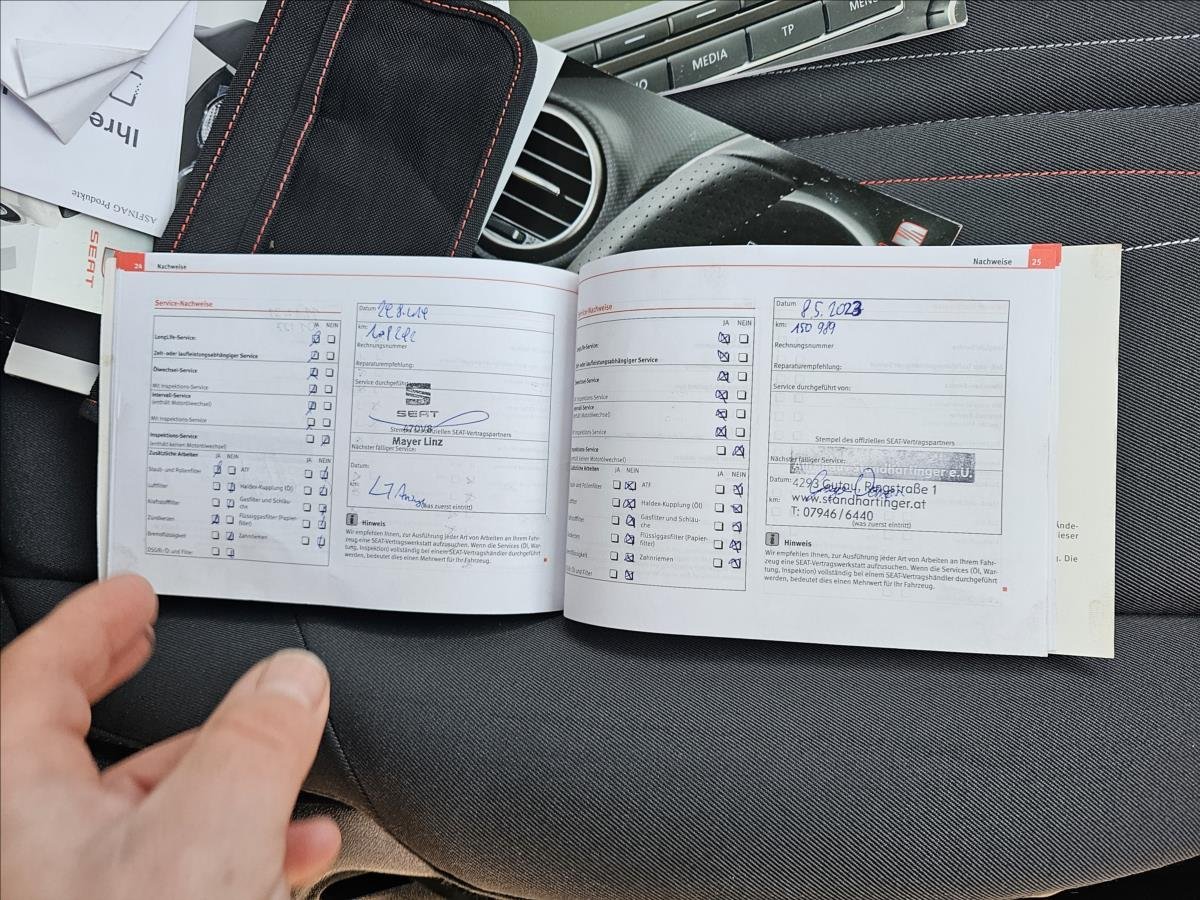 MEDIA
TP
MEN
Ihre
ASFINAG Produkte
SEAT
24 Nachweise
Service-Nachweise
JA NEIN
LongLife-Service:
Zeit- oder laufleistungsabhängiger Service
Ölwechsel-Service:
Mit Inspektions-Service
Intervall-Service
(enthält Motorölwechsel)
Mit Inspektions-Service
Inspektions-Service
(enthält keinen Motorölwechsel)
Zusätzliche Arbeiten JA NEIN JA NEIN
Staub- und Pollenfilter ATF
Luftfilter Haldex-Kupplung (Öl)
Kraftstofffilter Gasfilter und Schläu-
che
Zündkerzen Flüssiggasfilter (Papier-
filter)
Bremsflüssigkeit Zahnriemen
DSG®: Öl und Filter
Datum
km:
Rechnungsnummer
Reparaturempfehlung:
Service durchgeführt
SEAT
Stempel des offiziellen SEAT-Vertragspartners
Mayer Linz
Nächster fälliger Service:
Datum:
km:
(was zuerst eintritt)
Hinweis
Wir empfehlen Ihnen, zur Ausführung jeder Art von Arbeiten an Ihrem Fahr-
zeug eine SEAT-Vertragswerkstatt aufzusuchen. Wenn die Services (Öl, War-
tung, Inspektion) vollständig bei einem SEAT-Vertragshändler durchgeführt
werden, bedeutet dies einen Mehrwert für Ihr Fahrzeug.
Nachweise 25
Service-Nachweise
JA NEIN
LongLife-Service:
oder laufleistungsabhängiger Service
Inspektions-Service
(enthält Motorölwechsel)
Inspektions-Service
(enthält keinen Motorölwechsel)
JA NEIN JA NEIN
und Pollenfilter ATF
Haldex-Kupplung (Öl)
Gasfilter und Schläu-
che
Flüssiggasfilter (Papier-
filter)
Zahnriemen
Öl und Filter
Datum 8.5.2023
km: 150 989
Rechnungsnummer
Reparaturempfehlung:
Service durchgeführt von:
Stempel des offiziellen SEAT-Vertragspartners
Nächster fälliger Service:
Standhartinger e.U.
Datum: 4293 Gutau, Ringstraße 1
km: www.standhartinger.at
T: 07946/6440
(was zuerst eintritt)
Hinweis
Wir empfehlen Ihnen, zur Ausführung jeder Art von Arbeiten an Ihrem Fahr-
zeug eine SEAT-Vertragswerkstatt aufzusuchen. Wenn die Services (Öl, War-
tung, Inspektion) vollständig bei einem SEAT-Vertragshändler durchgeführt
werden, bedeutet dies einen Mehrwert für Ihr Fahrzeug.
Ände-
ieser
Die